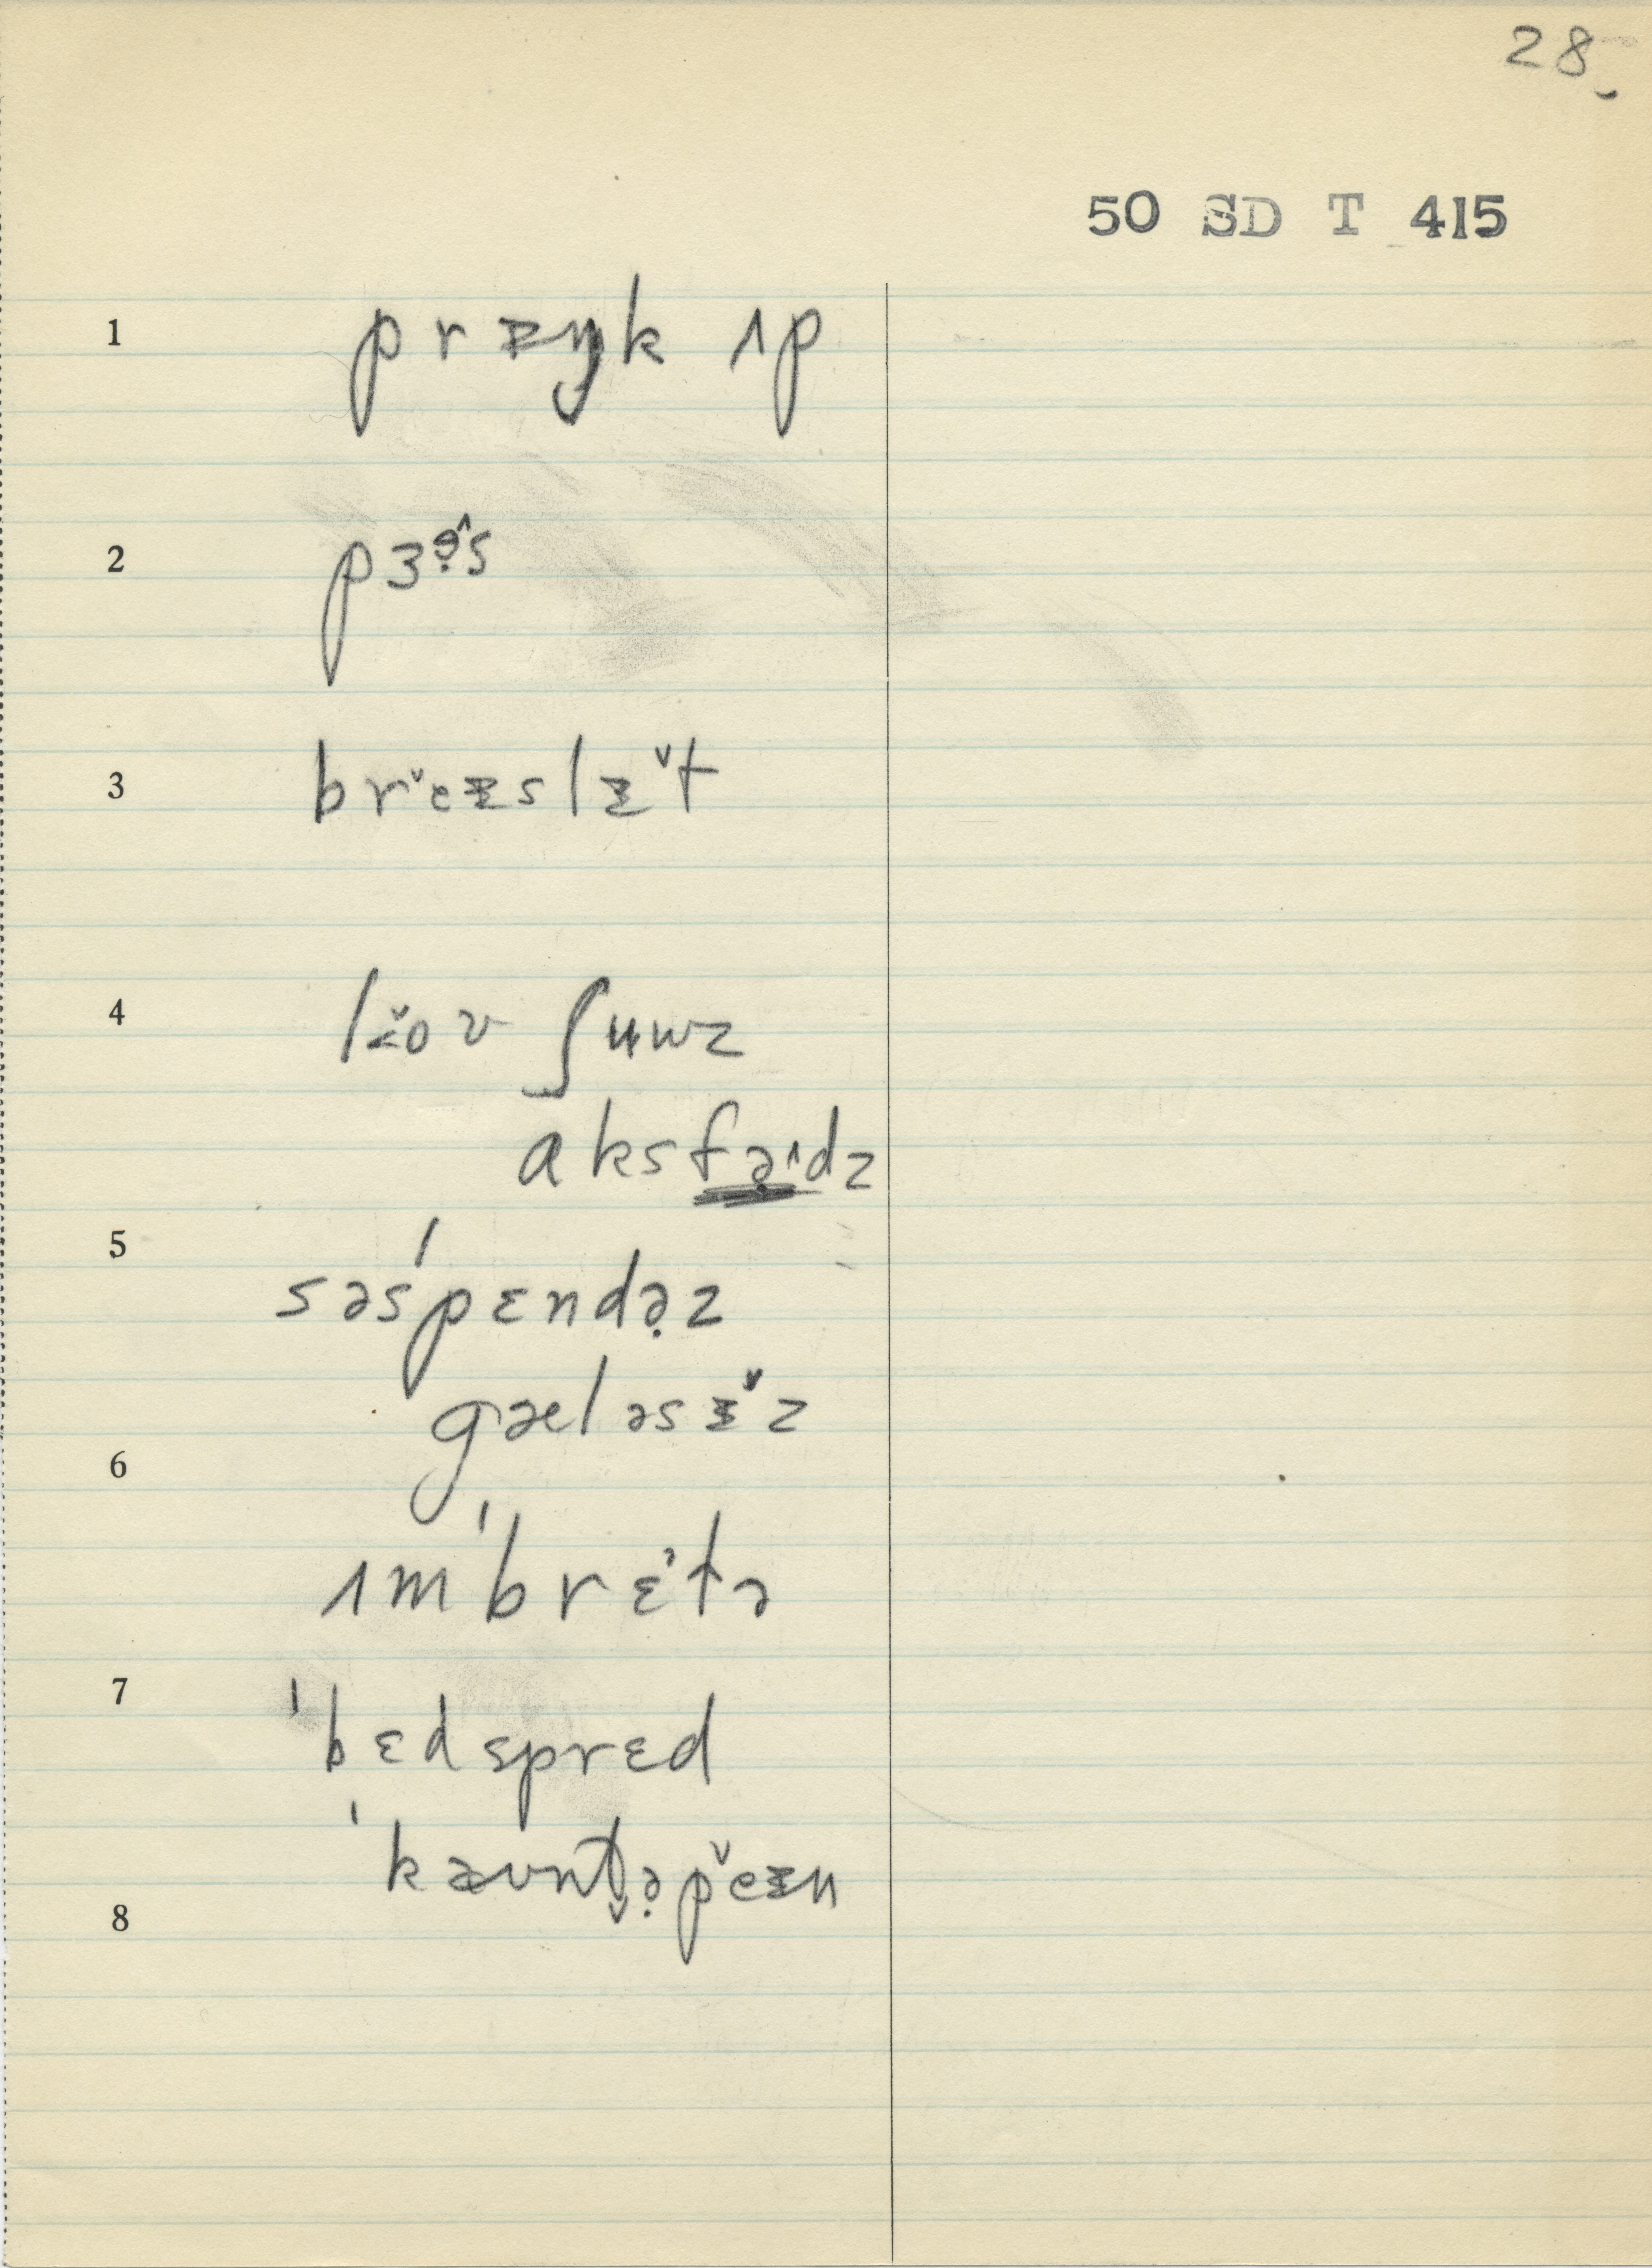 28
50 SD T 415
1 prᵻŋk ɪp
2 pɜə̣^s
3 brˇeᵻslᵻˇt
4 lɛˇov ʃʉwz
aksfə̣^dz
5 səsˈpɛndə̣z
gæləsᵻˇz
6 ɪmˈbrɛˀtə
7 ˈbɛdsprɛd
ˈkæʊnt̬ə̣pˇeᵻn
8